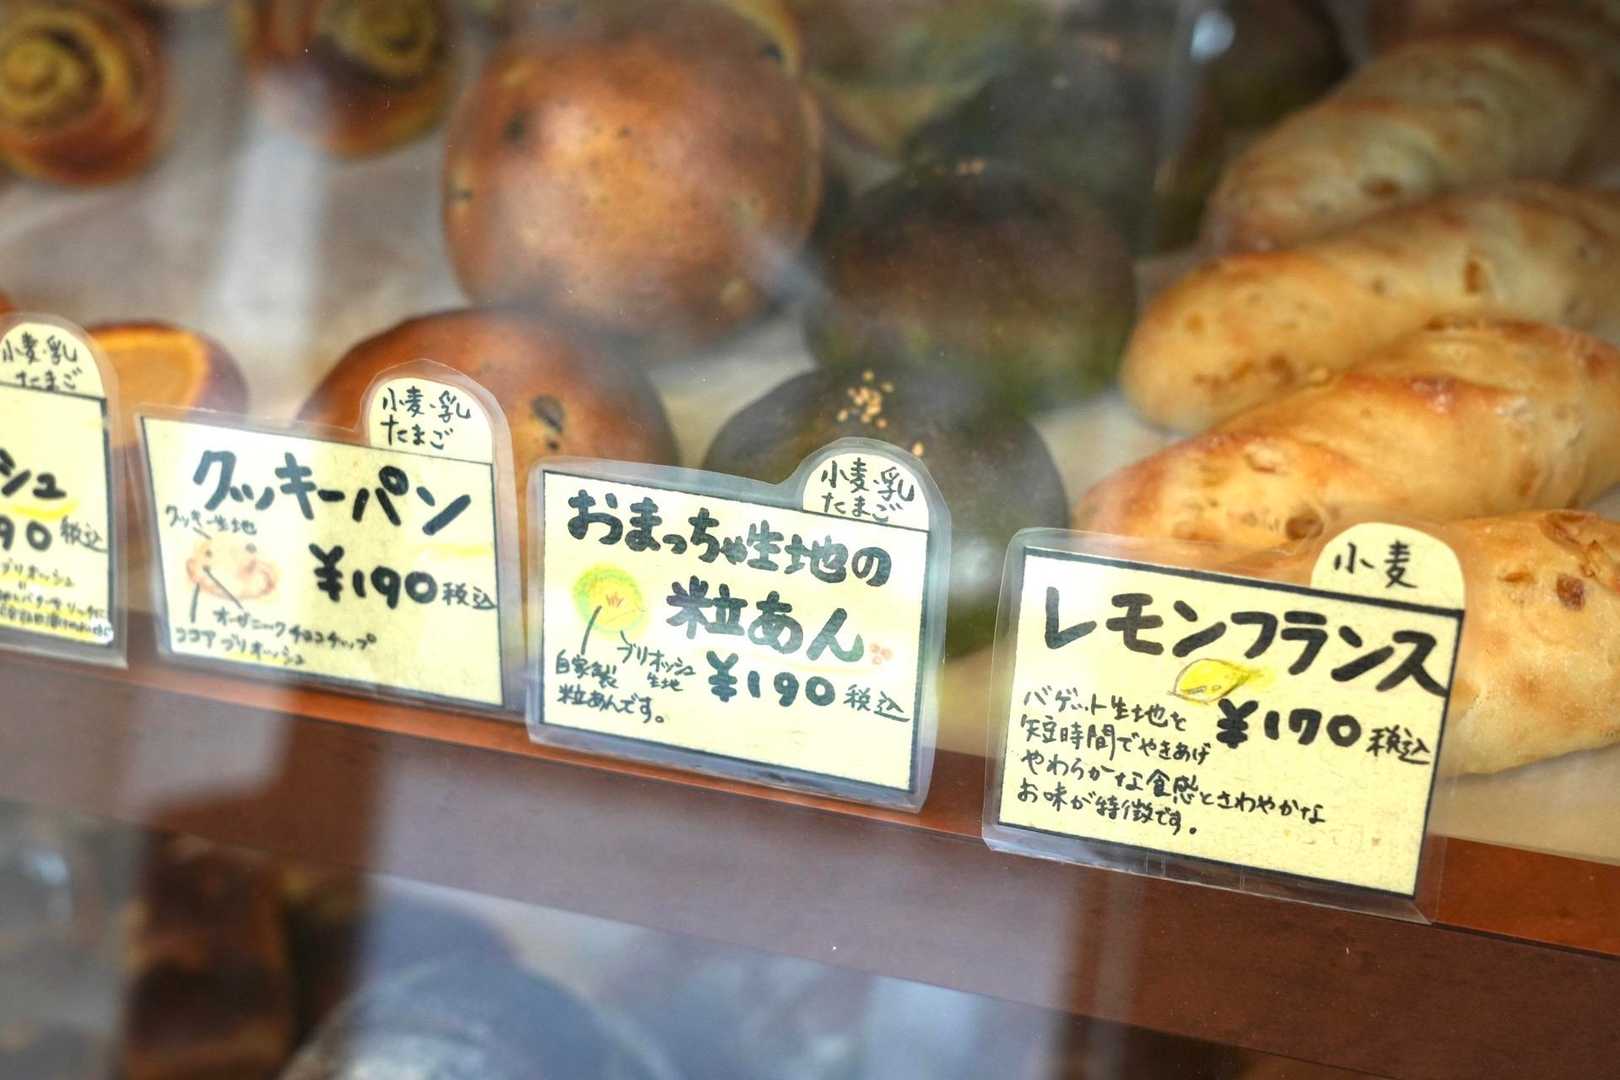 小麦・乳
たまご
シュ
90 税込
ブリオッシュ
小麦・乳
たまご
クッキーパン
クッキー生地
¥190 税込
オーガニックチョコチップ
ココアブリオッシュ
小麦・乳
たまご
おまっちゃ生地の
粒あん
¥190 税込
ブリオッシュ
生地
自家製
粒あんです。
小麦
レモンフランス
¥170 税込
バゲット生地を
短時間でやきあげ
やわらかな食感とさわやかな
お味が特徴です。